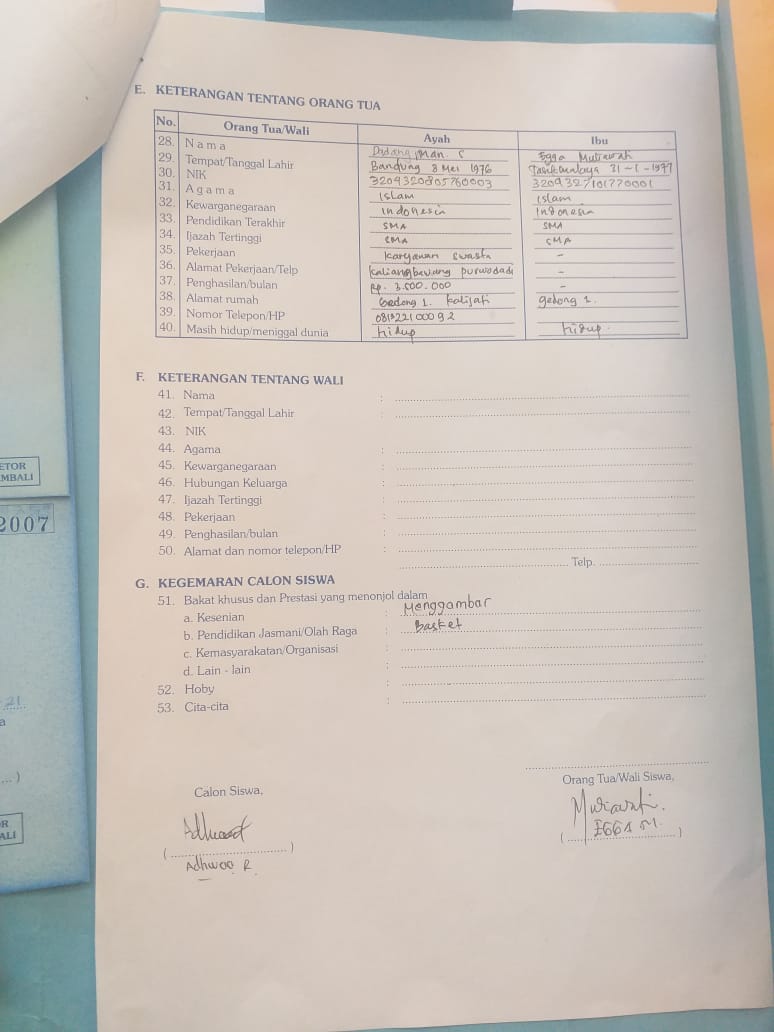 E. KETERANGAN TENTANG ORANG TUA
No. Orang Tua/Wali Ayah Ibu
28. N a m a Dadang Man. S Egga Mutiarah
29. Tempat/Tanggal Lahir Bandung 8 Mei 1976 Tasikmalaya 31-1-1977
30. NIK 3209320805760003 3209327101770001
31. A g a m a Islam Islam
32. Kewarganegaraan Indonesia Indonesia
33. Pendidikan Terakhir SMA SMA
34. Ijazah Tertinggi SMA SMA
35. Pekerjaan Karyawan Swasta -
36. Alamat Pekerjaan/Telp Kaliangbawang purwodadi -
37. Penghasilan/bulan Rp. 3.500.000 -
38. Alamat rumah Gedong 1. Kalijati gedong 1.
39. Nomor Telepon/HP
40. Masih hidup/meniggal dunia hidup hidup.
F. KETERANGAN TENTANG WALI
41. Nama :
42. Tempat/Tanggal Lahir :
43. NIK
44. Agama :
45. Kewarganegaraan :
46. Hubungan Keluarga :
47. Ijazah Tertinggi :
48. Pekerjaan :
49. Penghasilan/bulan :
50. Alamat dan nomor telepon/HP :
Telp.
G. KEGEMARAN CALON SISWA
51. Bakat khusus dan Prestasi yang menonjol dalam
a. Kesenian : Menggambar
b. Pendidikan Jasmani/Olah Raga : Basket
c. Kemasyarakatan/Organisasi :
d. Lain - lain :
52. Hoby :
53. Cita-cita :
Calon Siswa, Orang Tua/Wali Siswa,
EGGA M.
Adhwa R.
ETOR
MBALI
2007
21
a
R
ALI